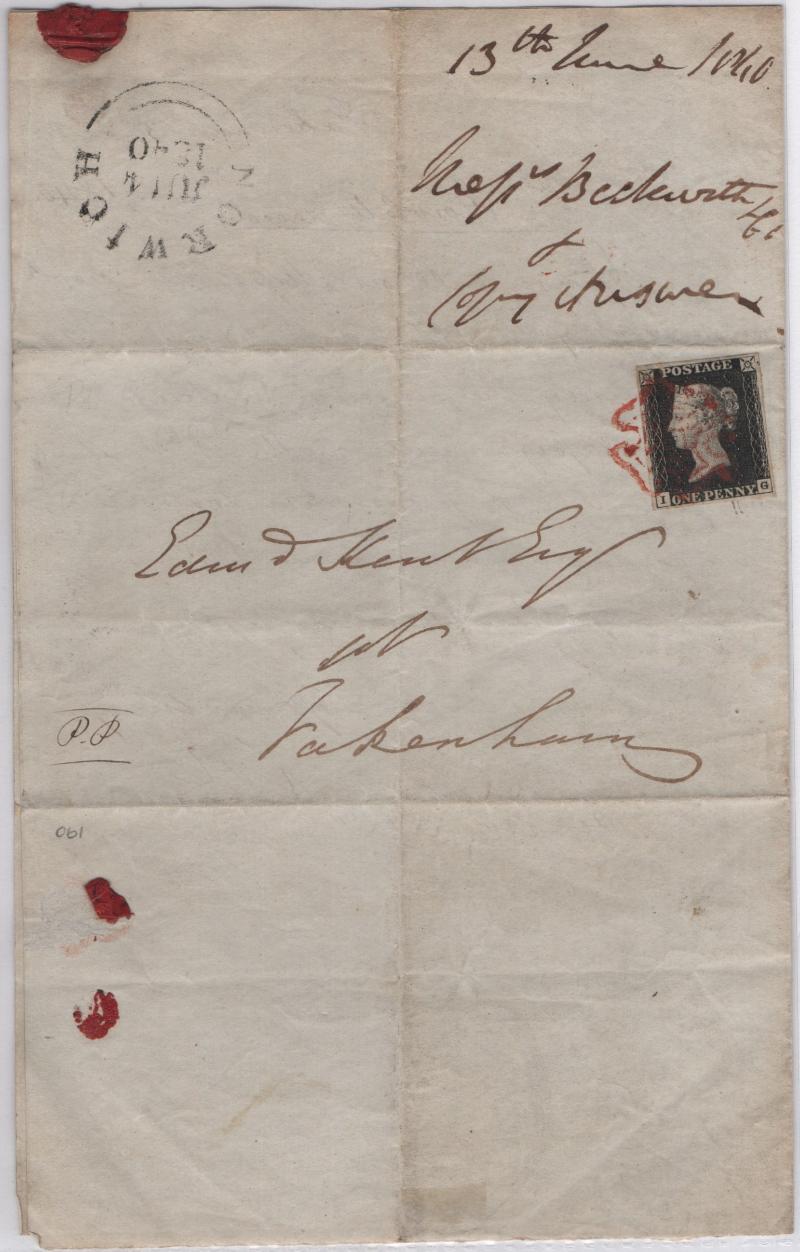 13th June 1840
Messrs Beckwith
&
Copy Answer
NORWICH
JU 14
1840
POSTAGE
I ONE PENNY G
Edmd Kent Esq
at
Fakenham
P.P
190